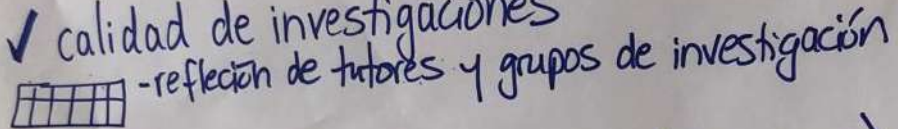 ✓ calidad de investigaciones
-refleción de tutores y grupos de investigación